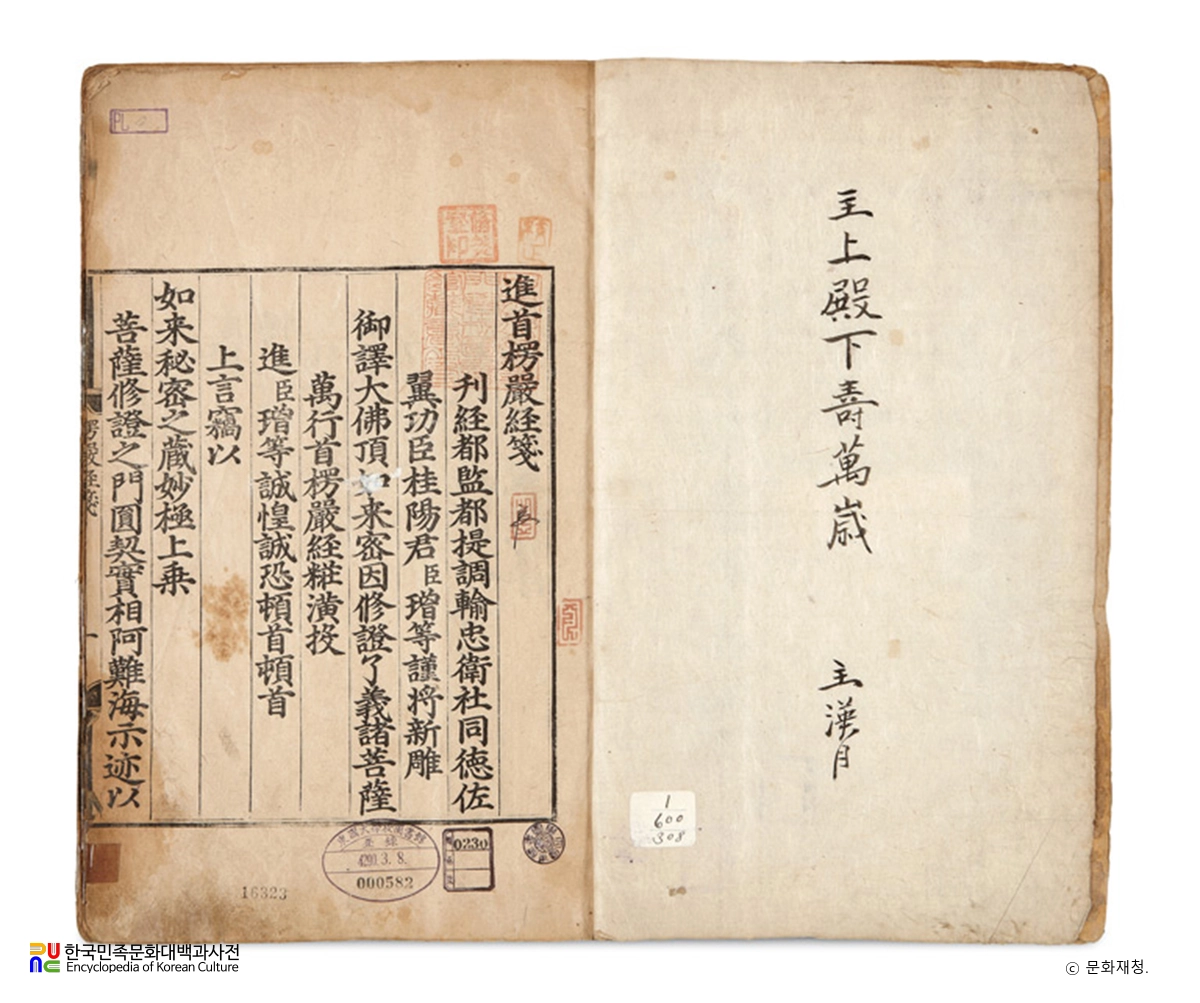 主上殿下壽萬歲
主 漢月
1
600
308
進首楞嚴經箋
刊經都監都提調輸忠衛社同德佐
翼功臣桂陽君臣璔等謹將新雕
御譯大佛頂如来密因修證了義諸菩薩
萬行首楞嚴經糚潢投
進臣璔等誠惶誠恐頓首頓首
上言竊以
如来秘密之蔵妙極上乗
菩薩修證之門圓契實相阿難海示迹以
0230
4291.3.8.
000582
16323
한국민족문화대백과사전
Encyclopedia of Korean Culture
ⓒ 문화재청.